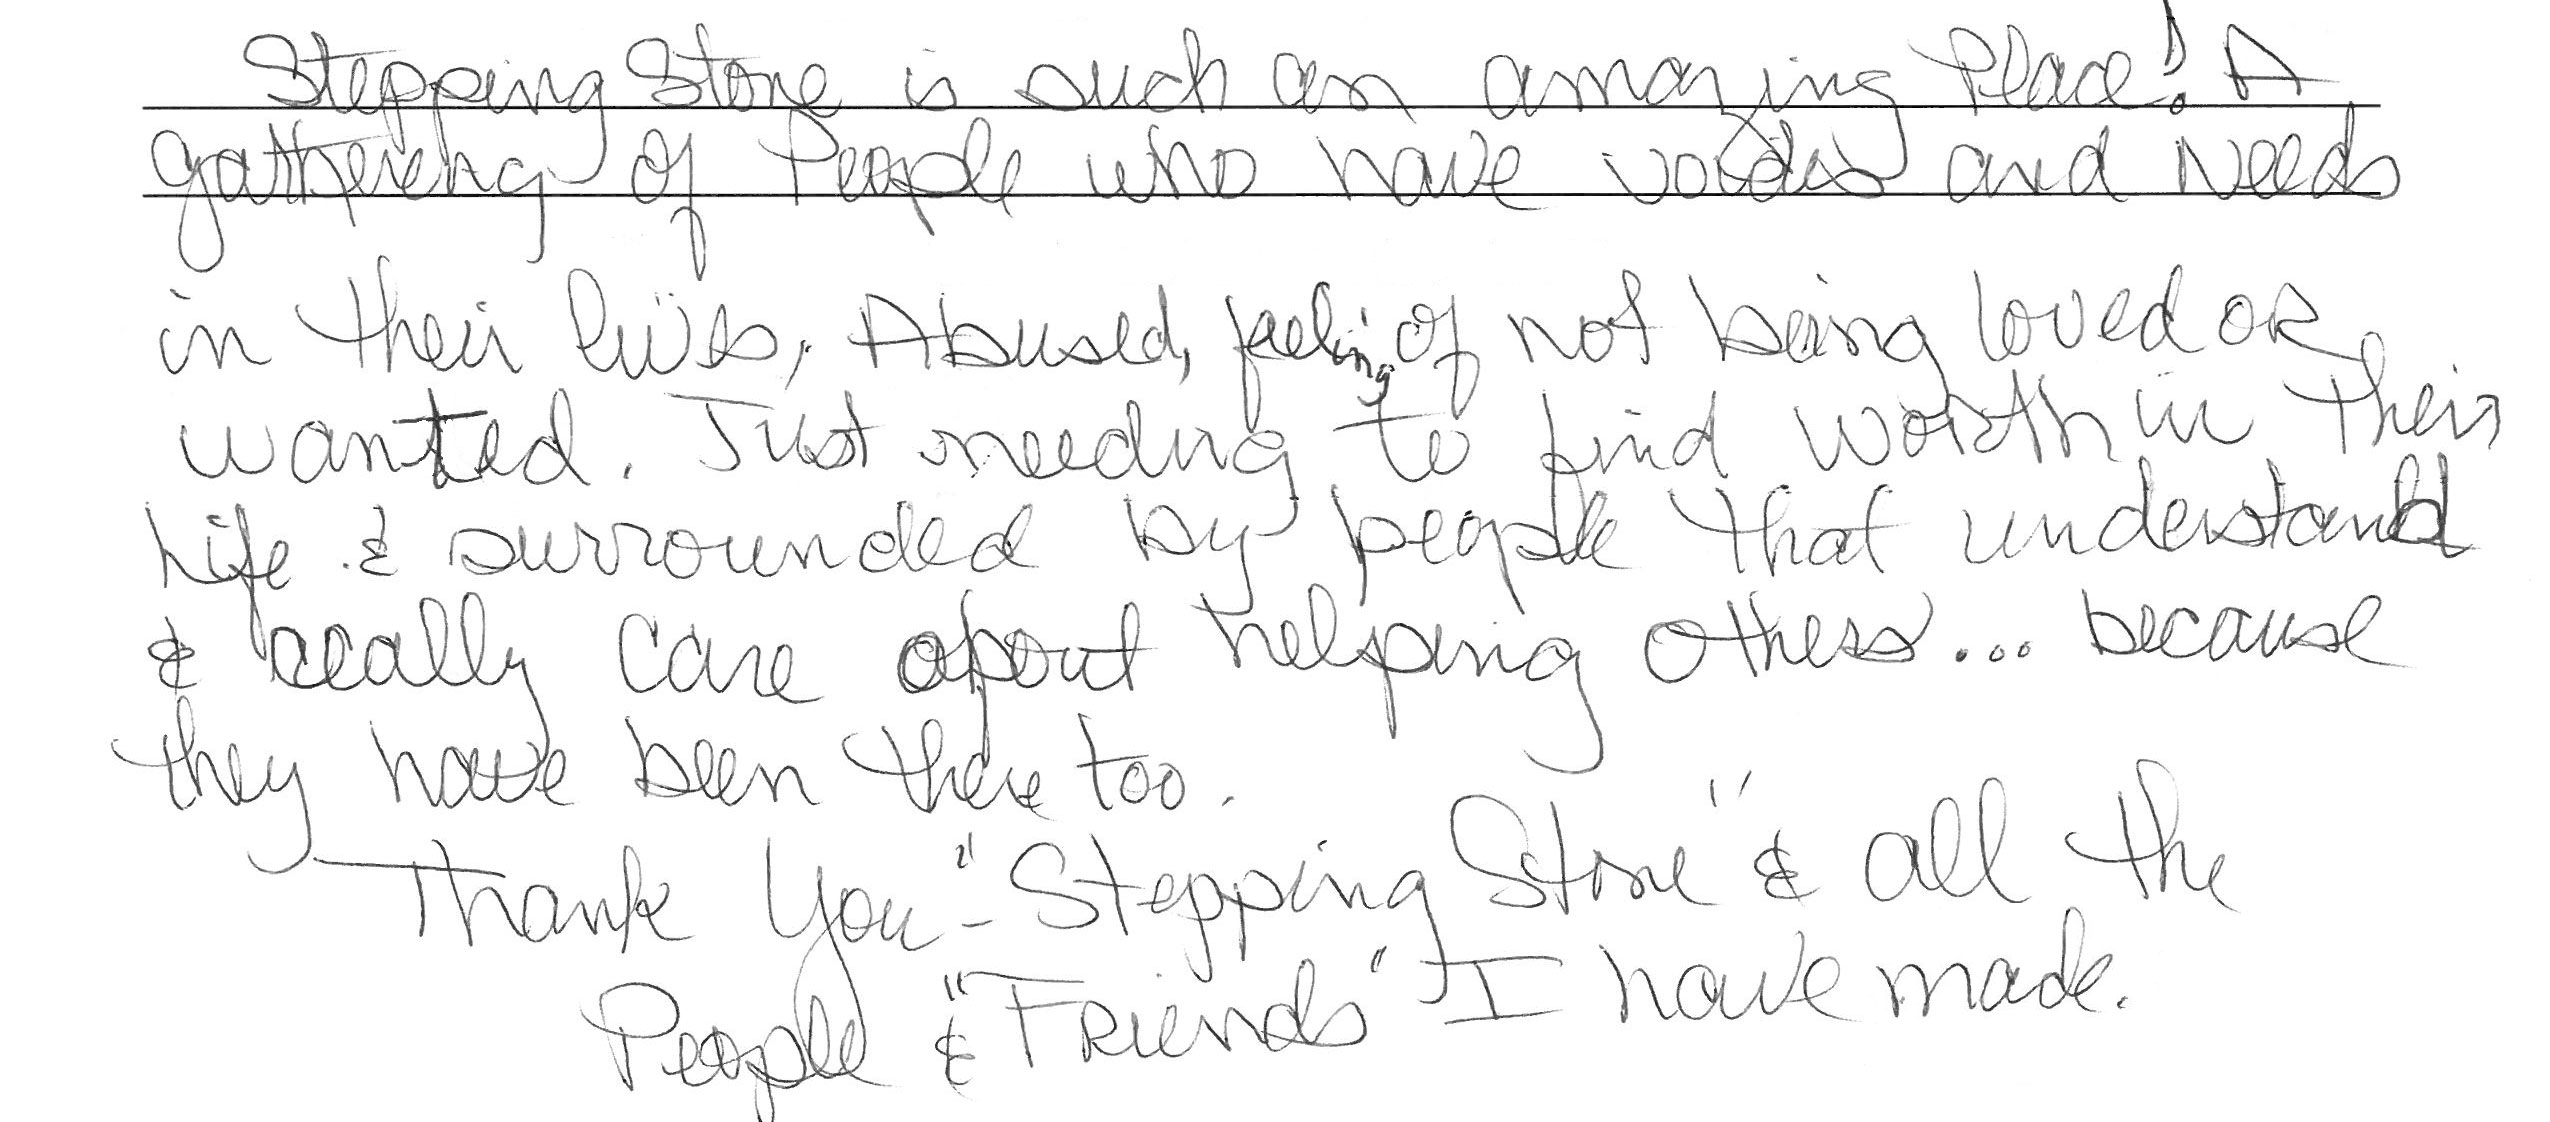 Stepping Stone is such an amazing Place! A
gathering of People who have voids and Needs
in their lives, Abused, feeling of not being loved or
wanted. Just needing to find worth in their
Life & surrounded by people that understand
& really care about helping others... because
they have been there too.
Thank You "Stepping Stone" & all the
People & "Friends" I have made.